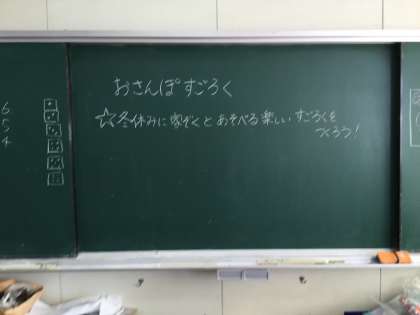 おさんぽすごろく
☆冬休みに家ぞくとあそべる楽しいすごろくを
つくろう!
6
5
4